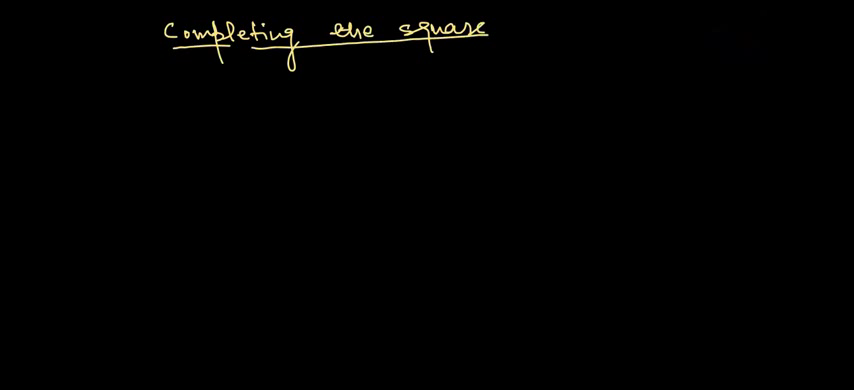 Completing the square